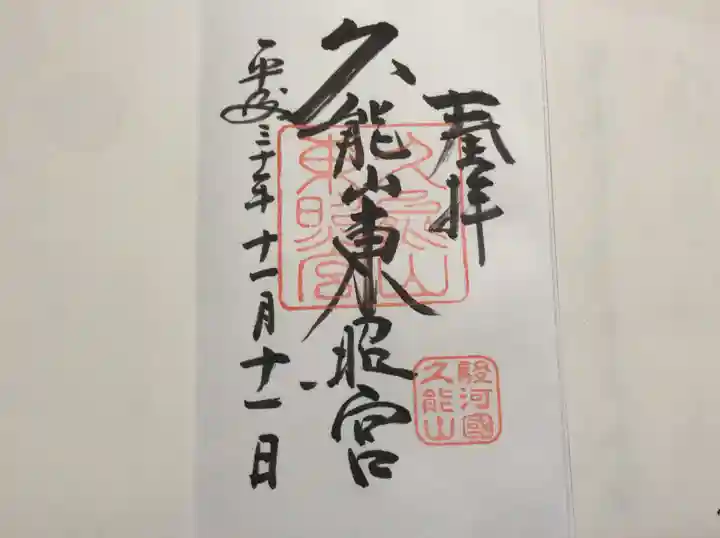 奉拝
久能山東照宮
平成三十年十一月十一日
久能山
東照宮
駿河國
久能山